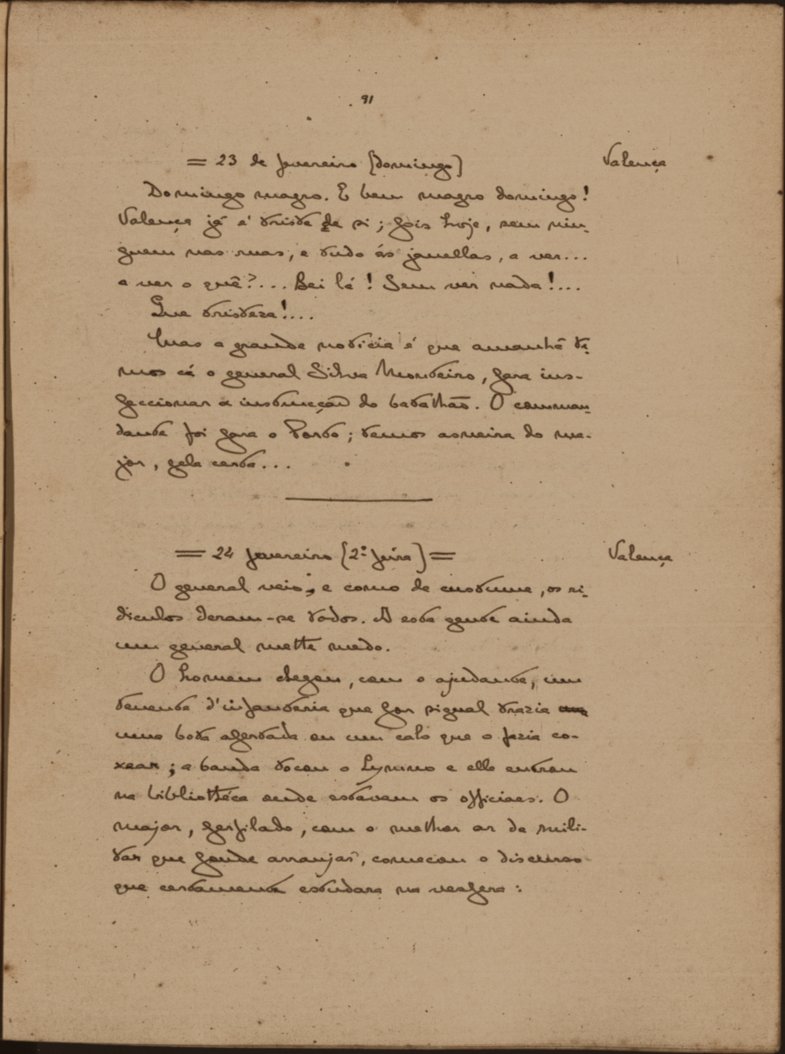 91
= 23 de fevereiro (domingo) Valença
Domingo magro. E bem magro domingo!
Valença já é triste de si; pois hoje, sem nin-
guem nas ruas, e tudo ás janellas, a ver...
a ver o quê?... Sei lá! Sem ver nada!...
Que tristeza!...
Mas a grande noticia é que amanhã te-
mos cá o general Silva Monteiro, para ins-
peccionar a instrucção do batalhão. O comman-
dante foi para o Porto; temos asneira do ma-
jor, pela certa...
= 24 fevereiro (2ª feira) = Valença
O general veio; e como de custume, os ri-
diculos deram-se todos. A esta gente ainda
um general mette medo.
O homem chegou, com o ajudante, um
tenente d'infanteria que por signal trazia
uma bota apertada ou um calo que o fazia co-
xear; a banda tocou o hymno e elle entrou
na bibliothéca onde estavam os officiaes. O
major, perfilado, com o melhor ar de mili-
tar que poude arranjar, começou o discurso
que certamente estudara na vespera: